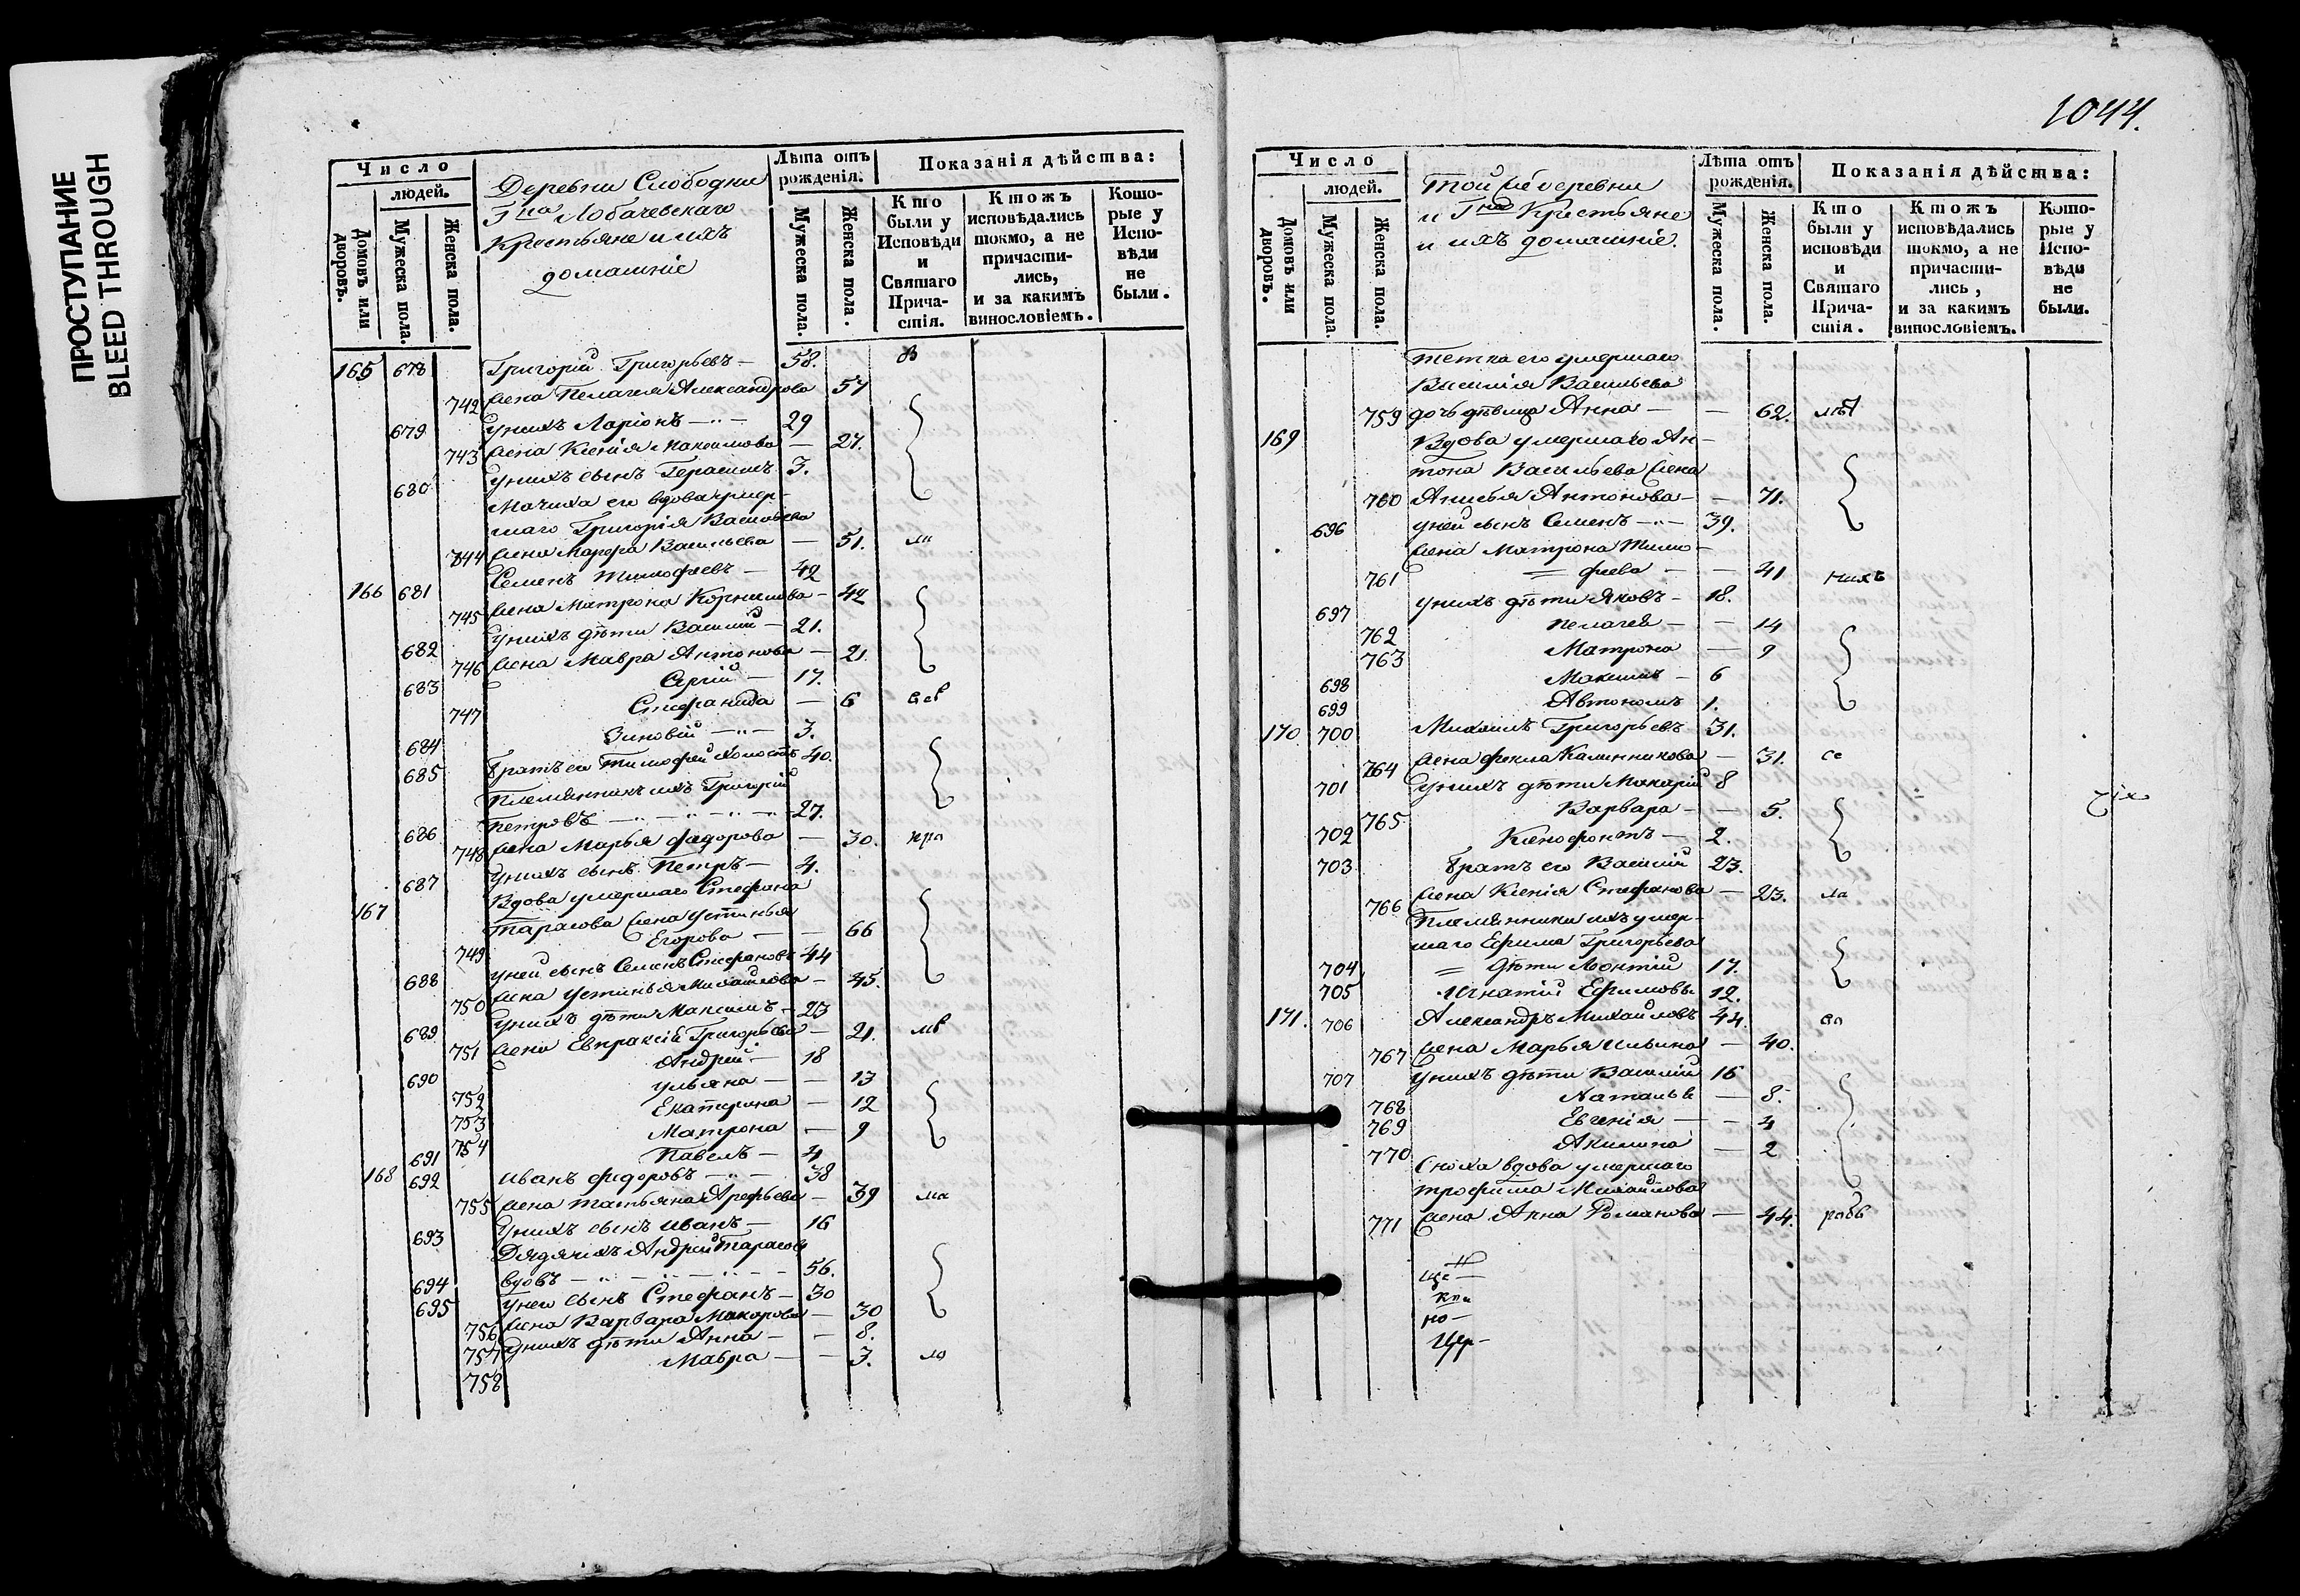 ПРОСТУПАНИЕ
BLEED THROUGH
Число
людей.
Домовъ или дворовъ.
Мужеска пола.
Женска пола.
Деревни Слободки
Гна Лобачевскаго
Крестьяне и ихъ
домашніе
Лѣта отъ рожденія.
Мужеска пола.
Женска пола.
Показанія дѣйства:
Кто были у Исповѣди и Святаго Прича-стія.
Ктожъ исповѣдались токмо, а не причасти-лись, и за какимъ винословіемъ.
Кото-рые у Испо-вѣди не были.
165 678 Григорій Григорьевъ — 58. в
742 жена Пелагея Александрова 57
679 у нихъ Ларіонъ — 29
743 жена Ксенія Максимова — 27.
680 у нихъ сынъ Герасимъ 3.
Мачиха его вдова умер-
шаго Григорія Васильева
744 жена Марфа Васильева — 51.
166 681 Семенъ Тимофеевъ — 42
745 жена Матрона Корнилова — 42
682 у нихъ дѣти Василій — 21.
746 жена Мавра Антонова — 21.
683 Сергій — 17.
747 Стефанида — 6
684 Зиновій — 3.
685 Братъ его Тимофей холостъ 40.
Племянникъ ихъ Григорій
686 Петровъ — 27.
748 жена Марья Федорова — 30. кра
687 у нихъ сынъ Петръ — 4.
167 Вдова умершаго Стефана
Тарасова жена Устинья
749 Егорова — — 66
688 у ней сынъ Семенъ Стефановъ 44
750 жена Устинья Михайлова — 45.
689 у нихъ дѣти Максимъ — 23
751 жена Евпраксія Григорьева — 21.
690 Андрей — 18
752 Ульяна — — 13
753 Екатерина — 12
754 Матрона — 9
691 Павелъ — 4
168 692 Иванъ Федоровъ — 38
755 жена Татьяна Арефьева — 39 ма
693 у нихъ сынъ Иванъ — 16
Дядя ихъ Андрей Тарасовъ
694 вдовъ — 56.
695 у него сынъ Стефанъ — 30
756 жена Варвара Макарова — 30
757 у нихъ дѣти Анна — — 8.
758 Мавра — — 3. ло
1044.
Число
людей.
Домовъ или дворовъ.
Мужеска пола.
Женска пола.
Той же деревни
и Гна Крестьяне
и ихъ домашніе.
Лѣта отъ рожденія.
Мужеска пола.
Женска пола.
Показанія дѣйства:
Кто были у исповѣди и Святаго Прича-стія.
Ктожъ исповѣдались токмо, а не причасти-лись, и за какимъ винословіемъ.
Кото-рые у Испо-вѣди не были.
тетка его умершаго
Василія Васильева
759 дочь дѣвица Анна — — 62.
169 Вдова умершаго Ан-
тона Васильева жена
760 Анисья Антонова — — 71.
696 у ней сынъ Семенъ — 39.
жена Матрона Тимо-
761 феева — — 41
697 у нихъ дѣти Яковъ — 18.
762 Пелагея — — 14
763 Матрона — 9
698 Максимъ — 6
699 Автономъ 1.
170. 700 Михаилъ Григорьевъ 31.
764 жена Фекла Калинникова — 31. се
701 у нихъ дѣти Макарій 8
765 Варвара — — 5.
702 Ксенофонтъ — 2.
703 Братъ его Василій 23.
766 жена Ксенія Стефанова — 23.
Племянники ихъ умер-
шаго Ефима Григорьева
704 дѣти Леонтій 17.
705 Игнатій Ефимовы 12.
171. 706 Александръ Михайловъ 44.
767 жена Марья Ильина — 40.
707 у нихъ дѣти Василій 16
768 Наталья — 8.
769 Евгенія — — 4
770 Акилина — 2
Сноха вдова умершаго
Трофима Михайлова
771 жена Анна Романова — 44. рабо
но —
Цер —